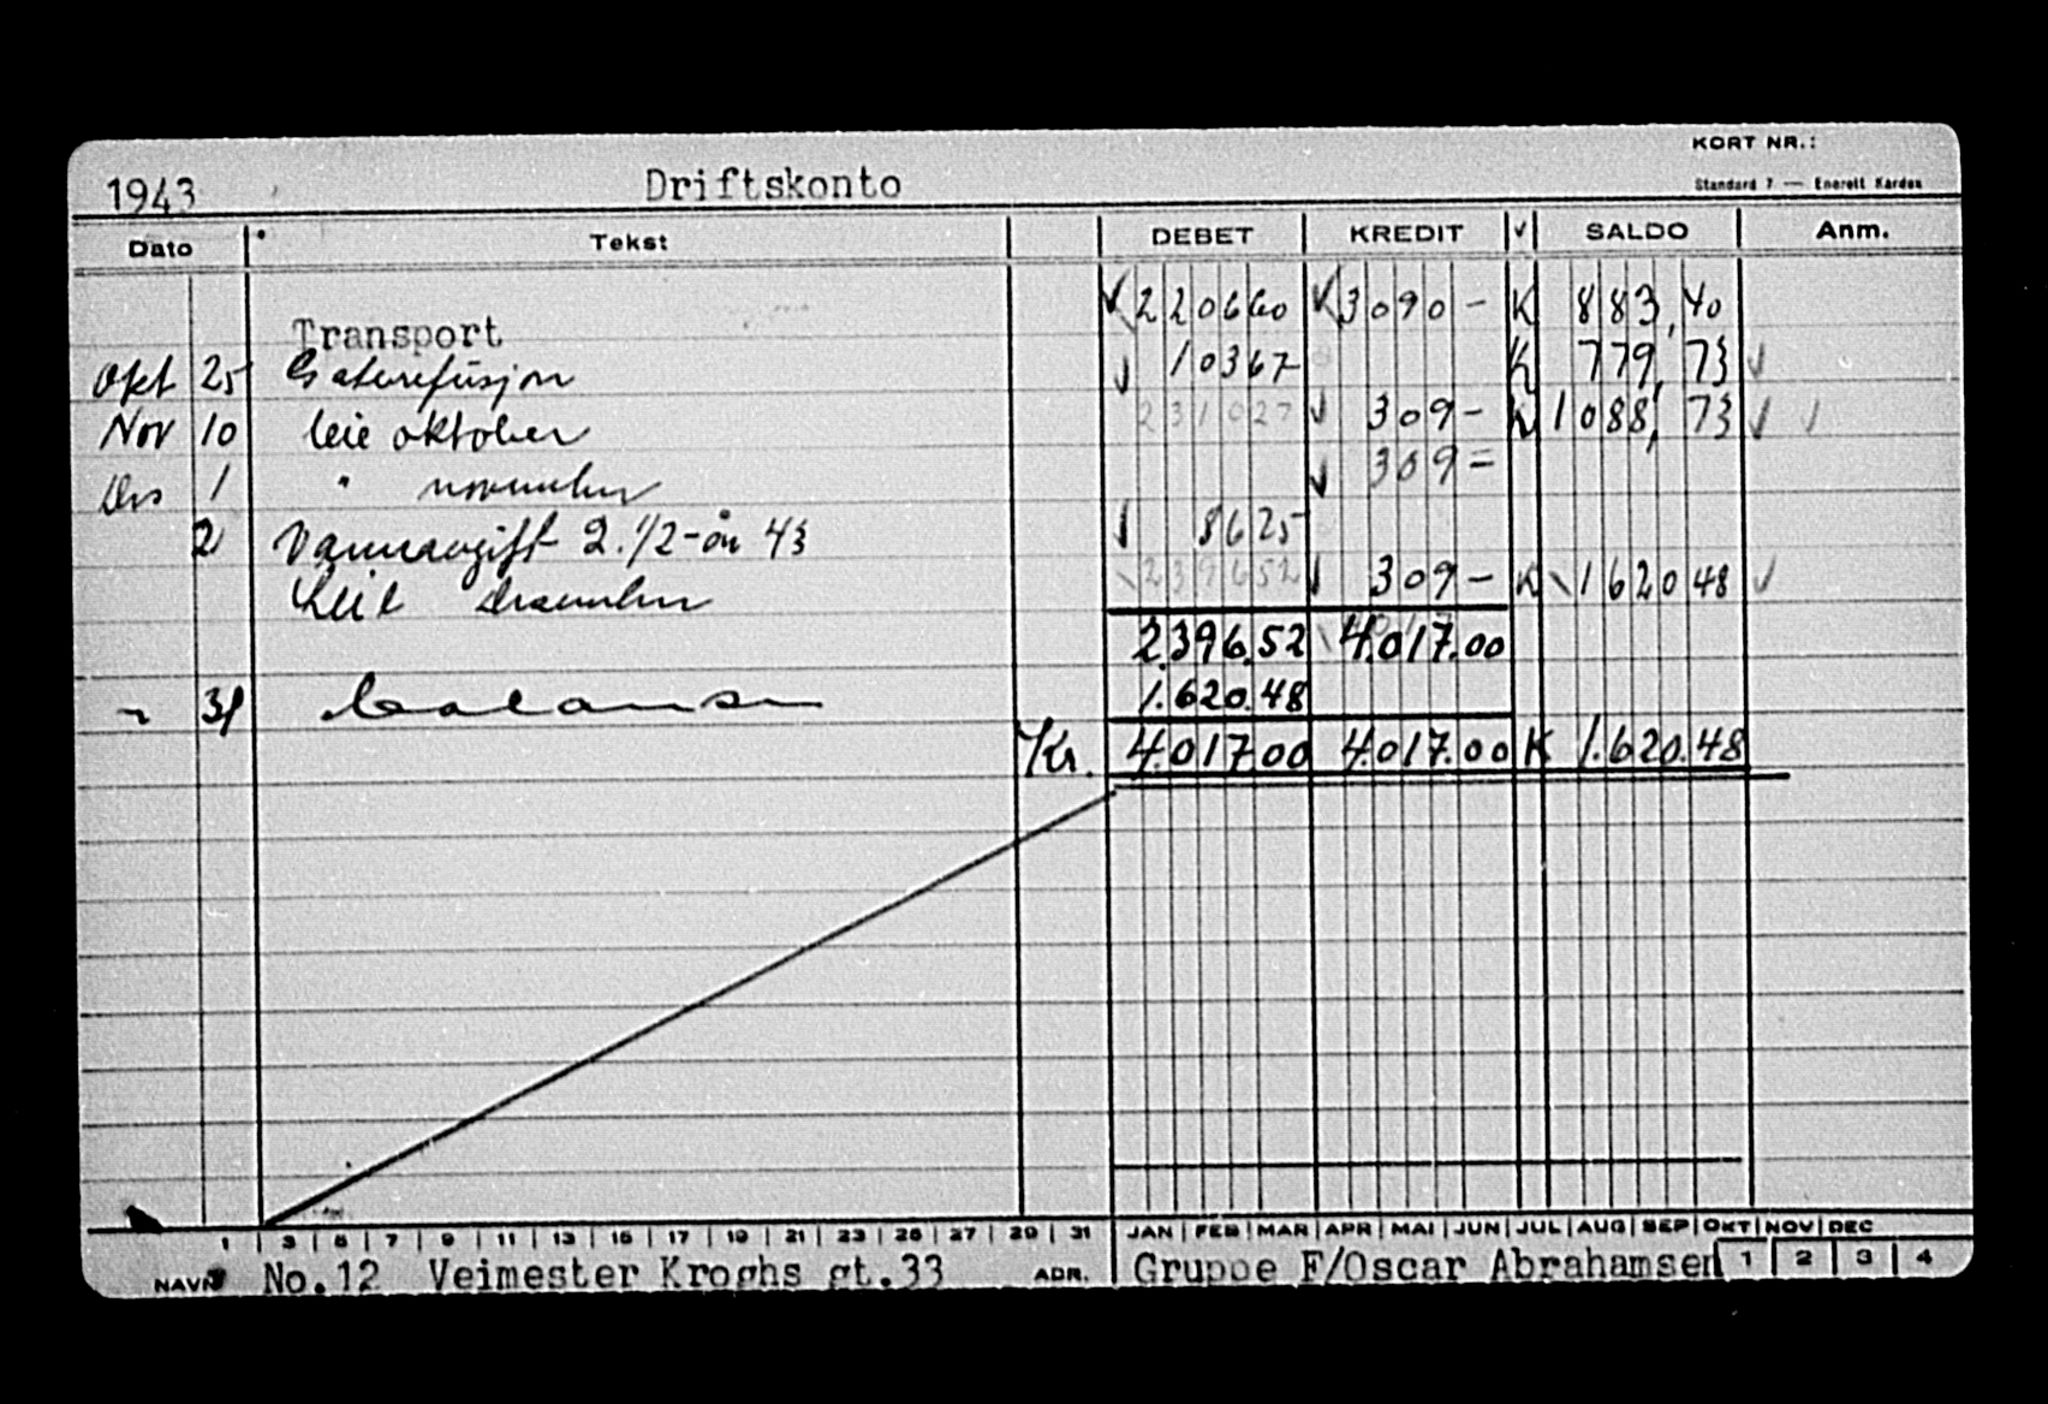 KORT NR.:
1943 Driftskonto Standard 7 — Enerett Kardex
Dato Tekst DEBET KREDIT √ SALDO Anm.
Transport 220660 3090 - K 883,40
Okt 25 Gaterefusjon 10367 K 779,73
231027
Nov 10 leie oktober 309 - K 1088,73
Des 1 " november 309 =
2 Vannavgift 2.1/2-år 43 8625
239652
Leie desember 309 - K 1620 48
2.396.52 4.017.00
" 31 balanse 1.620.48
Kr. 4.017.00 4.017.00 K 1.620.48
1 3 5 7 9 11 13 15 17 19 21 23 25 27 29 31 JAN FEB MAR APR MAI JUN JUL AUG SEP OKT NOV DEC
NAVN No.12 Veimester Kroghs gt.33 ADR. Gruppe F/Oscar Abrahamsen 1 2 3 4